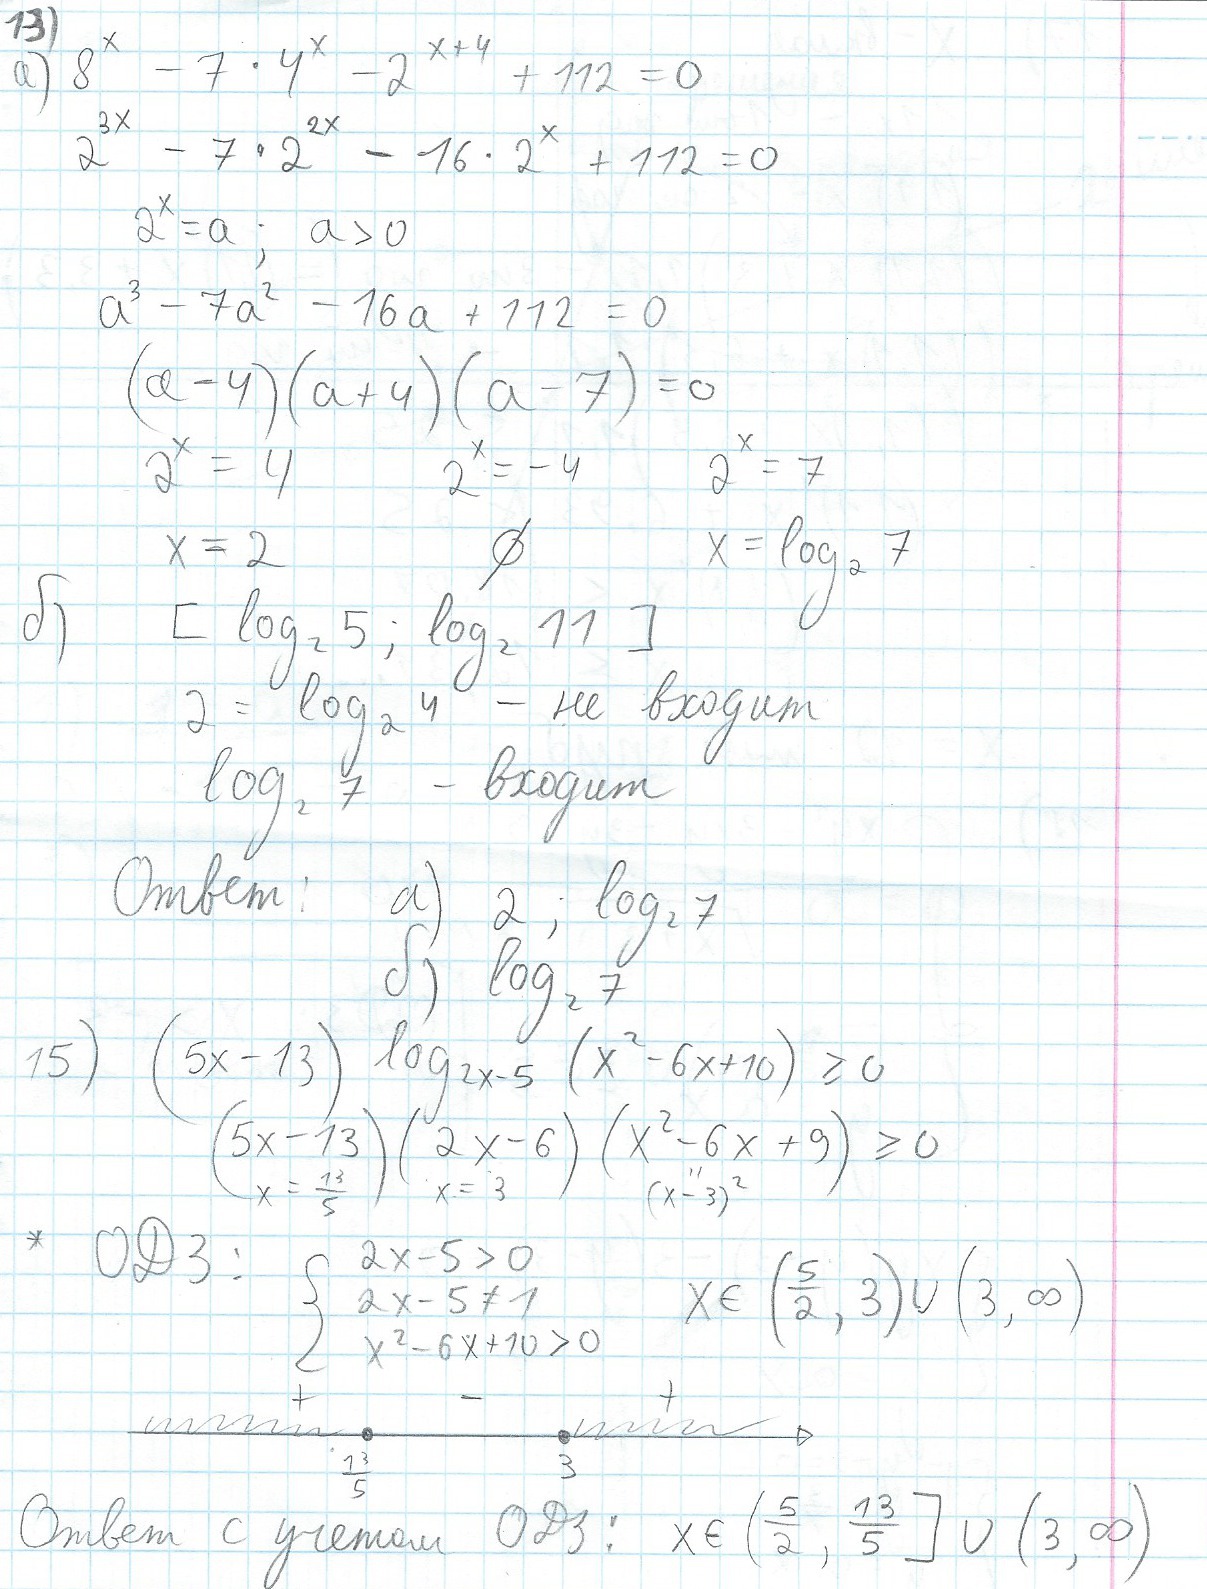 13)
а) 8^x - 7 · 4^x - 2^{x+4} + 112 = 0
2^{3x} - 7 · 2^{2x} - 16 · 2^x + 112 = 0
2^x = a ; a > 0
a³ - 7a² - 16a + 112 = 0
(a - 4)(a + 4)(a - 7) = 0
2^x = 4 2^x = -4 2^x = 7
x = 2 ∅ x = log₂ 7
б) [ log₂ 5 ; log₂ 11 ]
2 = log₂ 4 - не входит
log₂ 7 - входит
Ответ: а) 2 ; log₂ 7
б) log₂ 7
15) (5x - 13) log_{2x-5} (x² - 6x + 10) ≥ 0
(5x - 13)(2x - 6)(x² - 6x + 9) ≥ 0
x = 13/5 x = 3 (x - 3)²
* ОДЗ: { 2x - 5 > 0
2x - 5 ≠ 1 x ∈ (5/2, 3) ∪ (3, ∞)
x² - 6x + 10 > 0
+ - +
13/5 3
Ответ с учетом ОДЗ: x ∈ (5/2, 13/5] ∪ (3, ∞)